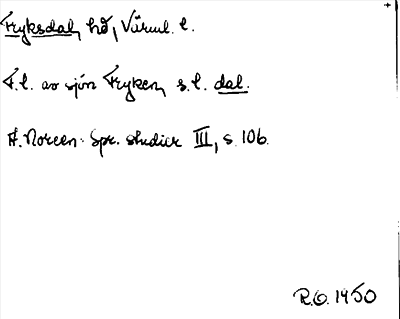 Fryksdal, hd, Värml. l.
F.l. av sjön Fryken, s.l. dal.
A. Noreen: Spr. studier III, s. 106.
R.O. 1950